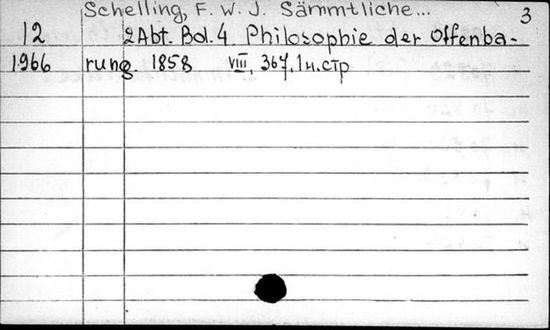 Schelling, F. W. J. Sämmtliche... 3
12 2 Abt. Bd. 4 Philosophie der Offenba-
1966 rung. 1858 VIII, 367, 1 н. стр